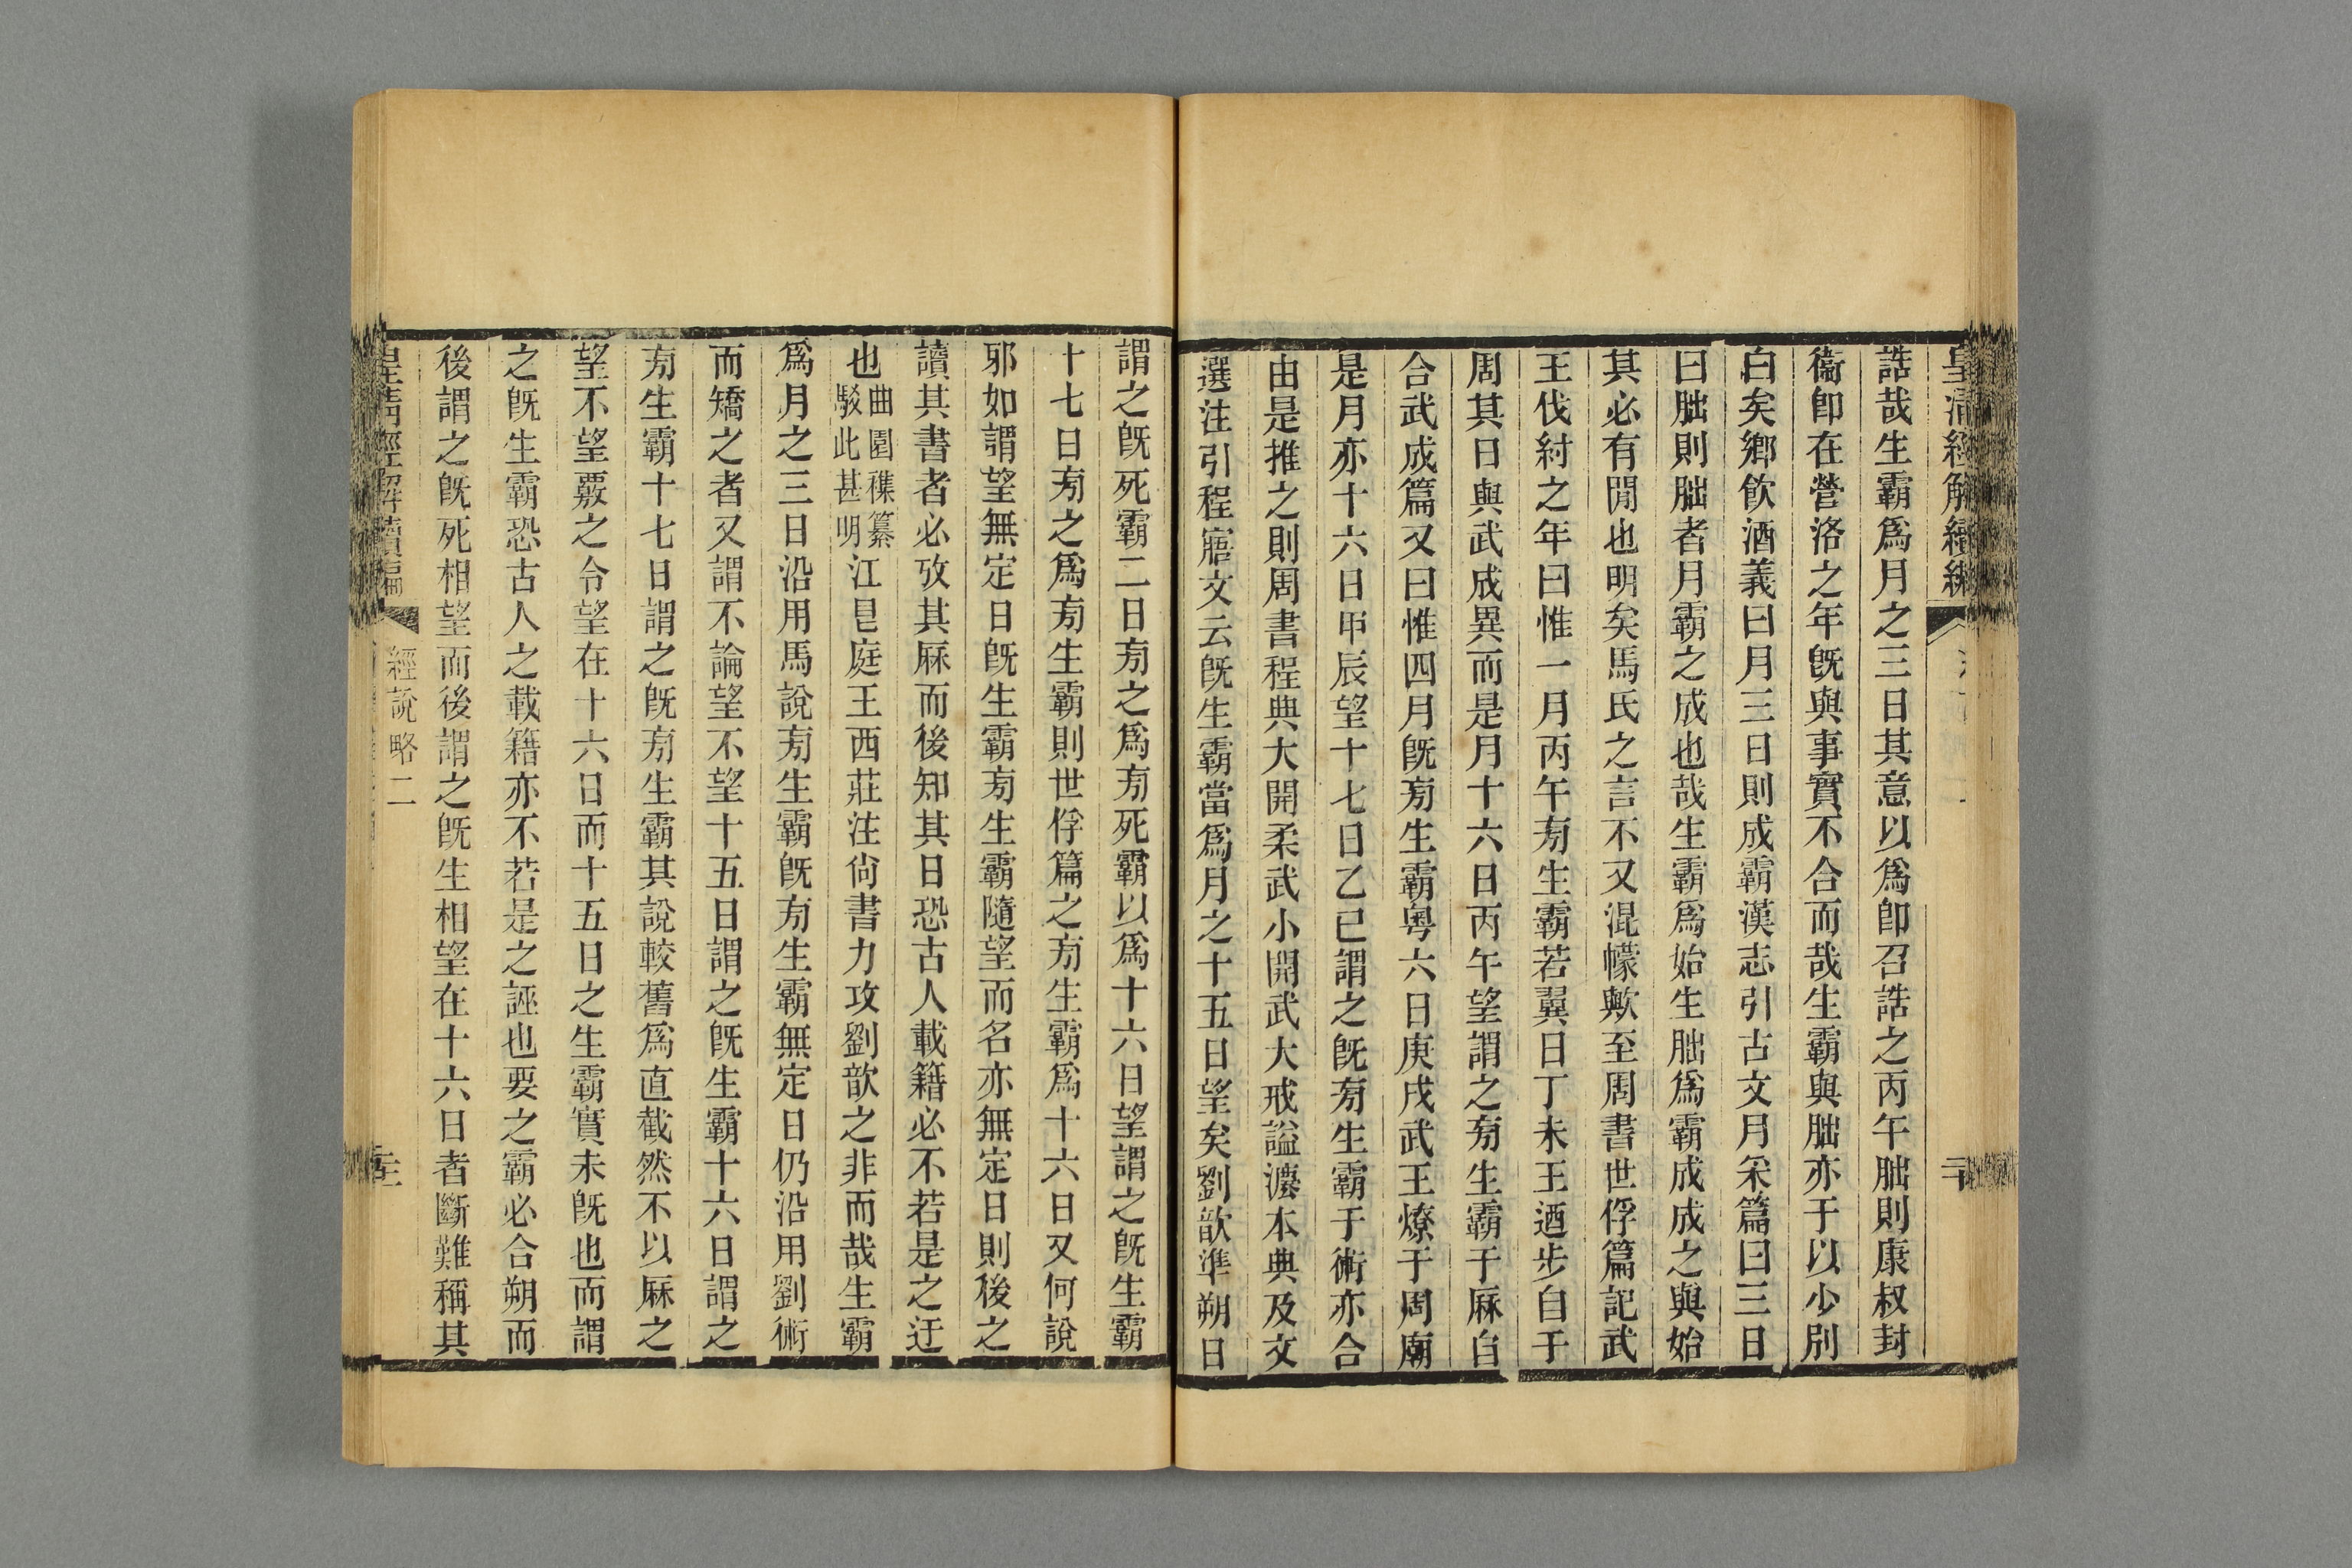 皇清經解續編
誥哉生霸爲月之三日其意以爲卽召誥之丙午朏則康叔封
衞卽在營洛之年旣與事實不合而哉生霸與朏亦于以少別
白矣鄉飮酒義曰月三日則成霸漢志引古文月采篇曰三日
曰朏則朏者月霸之成也哉生霸爲始生朏爲霸成成之與始
其必有閒也明矣馬氏之言不又混幪歟至周書世俘篇記武
王伐紂之年曰惟一月丙午㫄生霸若翼日丁未王迺步自于
周其日與武成異而是月十六日丙午望謂之㫄生霸于厤自
合武成篇又曰惟四月旣㫄生霸粵六日庚戌武王燎于周廟
是月亦十六日甲辰望十七日乙巳謂之旣㫄生霸于術亦合
由是推之則周書程典大開柔武小開武大戒謚灋本典及文
選注引程寤文云旣生霸當爲月之十五日望矣劉歆準朔日
謂之旣死霸二日㫄之爲㫄死霸以爲十六日望謂之旣生霸
十七日㫄之爲㫄生霸則世俘篇之㫄生霸爲十六日又何說
邪如謂望無定日旣生霸㫄生霸隨望而名亦無定日則後之
讀其書者必攷其厤而後知其日恐古人載籍必不若是之迂
也曲園襍纂駁此甚明江艮庭王西莊注尙書力攻劉歆之非而哉生霸
爲月之三日沿用馬說㫄生霸旣㫄生霸無定日仍沿用劉術
而矯之者又謂不論望不望十五日謂之旣生霸十六日謂之
㫄生霸十七日謂之旣㫄生霸其說較舊爲直截然不以厤之
望不望覈之令望在十六日而十五日之生霸實未旣也而謂
之旣生霸恐古人之載籍亦不若是之誣也要之霸必合朔而
後謂之旣死相望而後謂之旣生相望在十六日者斷難稱其
皇清經解續編
經說略二